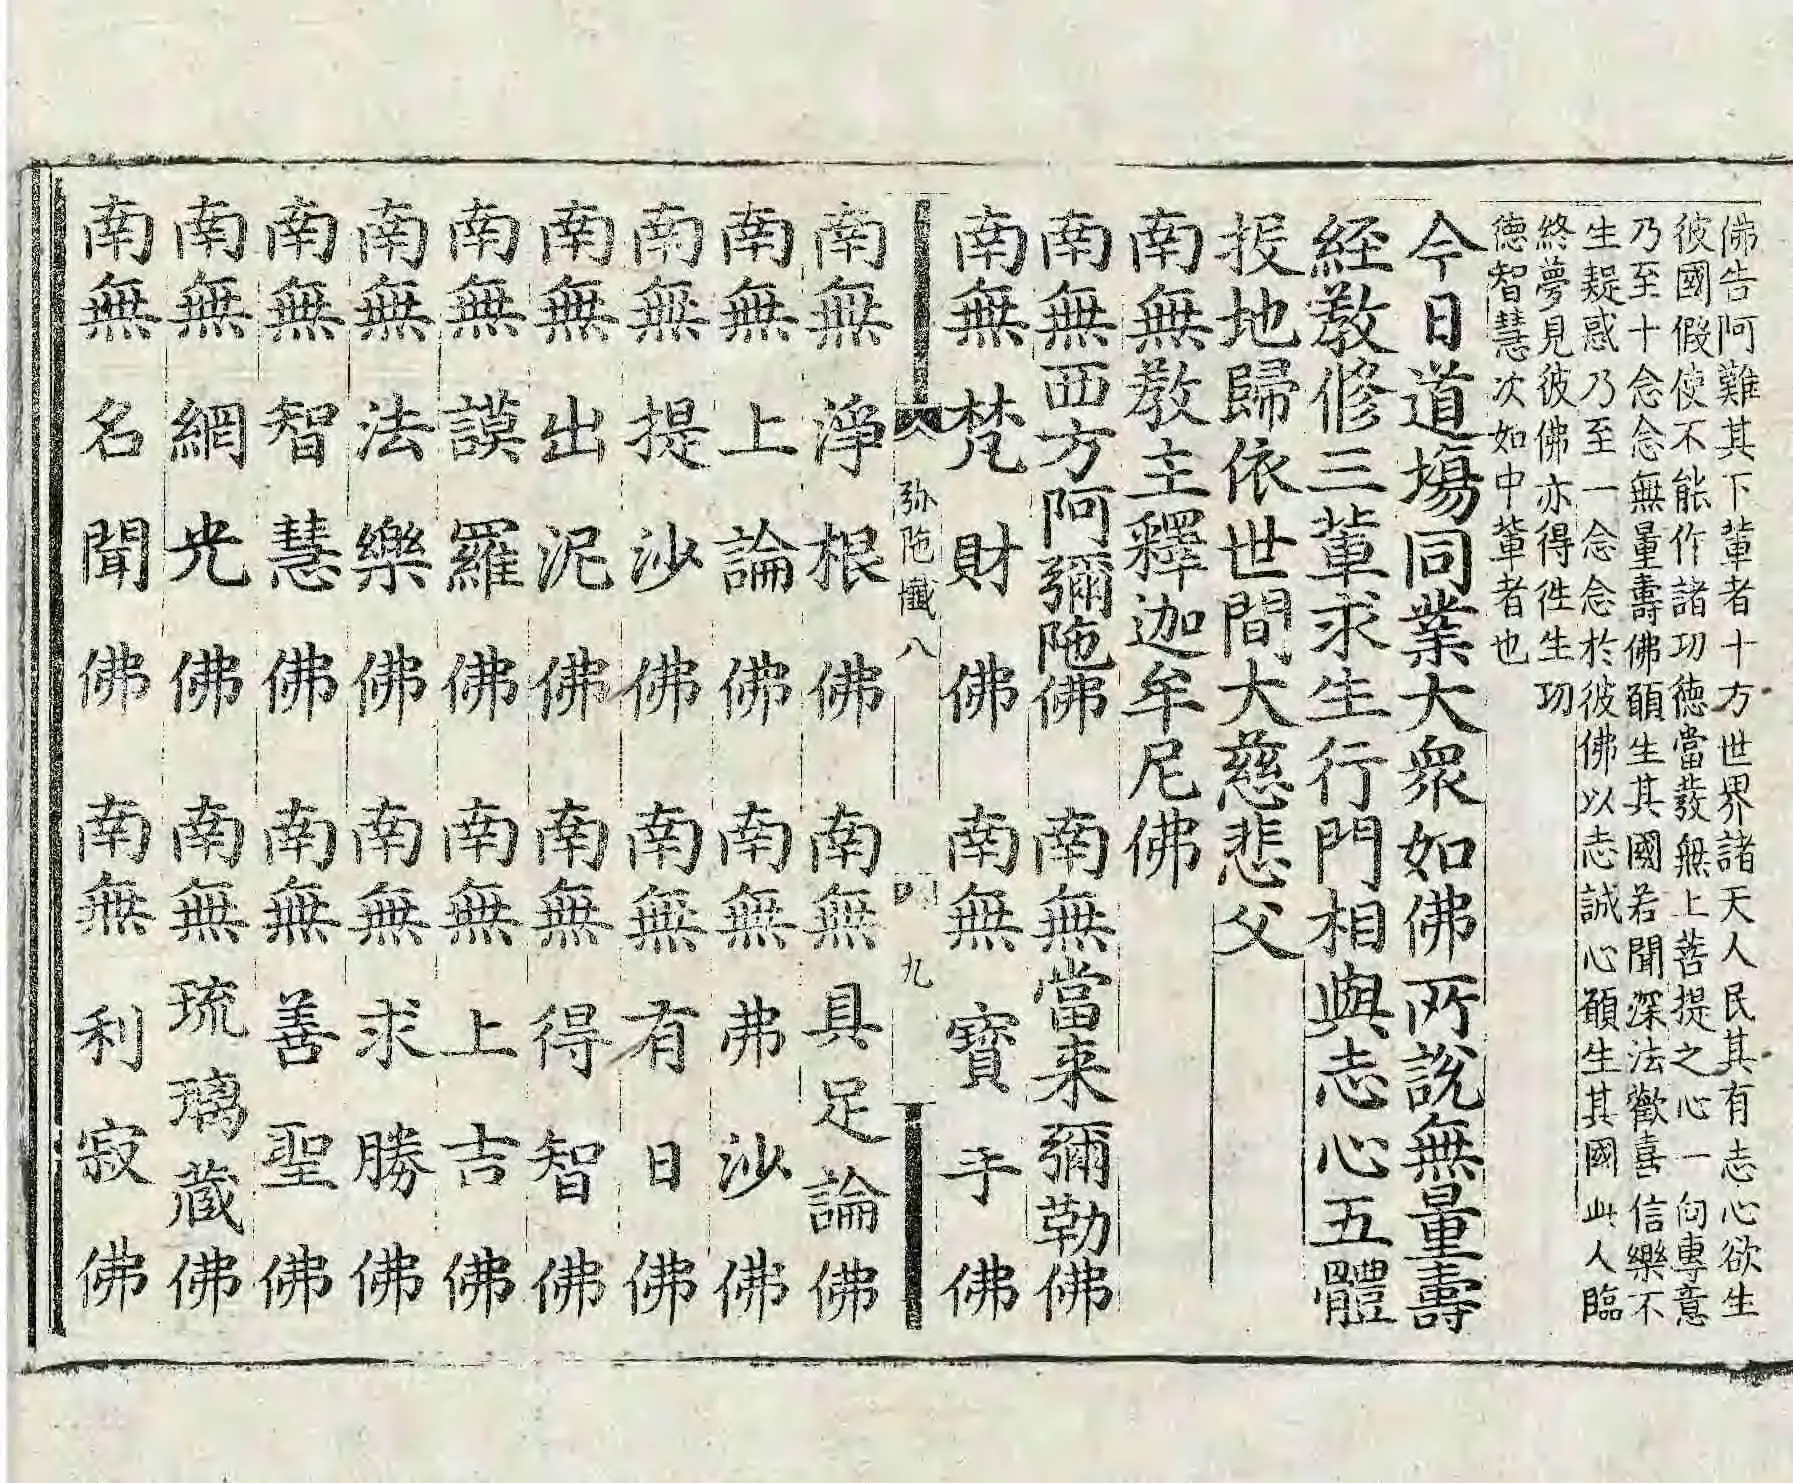 佛告阿難其下軰者十方世界諸天人民其有志心欲生
彼國假使不能作諸功徳當發無上菩提之心一向專意
乃至十念念無量壽佛願生其國若聞深法歡喜信樂不
生疑惑乃至一念念於彼佛以志誠心願生其國此人臨
終夢見彼佛亦得徃生功
徳智慧次如中軰者也
今日道場同業大衆如佛所說無量壽
經教修三軰求生行門相與志心五體
投地歸依世間大慈悲父
南無教主釋迦牟尼佛
南無西方阿彌陁佛 南無當来彌勒佛
南無梵財佛 南無寶手佛
弥陁懺八 九
南無淨根佛 南無具足論佛
南無上論佛 南無弗沙佛
南無提沙佛 南無有日佛
南無出泥佛 南無得智佛
南無謨羅佛 南無上吉佛
南無法樂佛 南無求勝佛
南無智慧佛 南無善聖佛
南無網光佛 南無琉璃藏佛
南無名聞佛 南無利寂佛